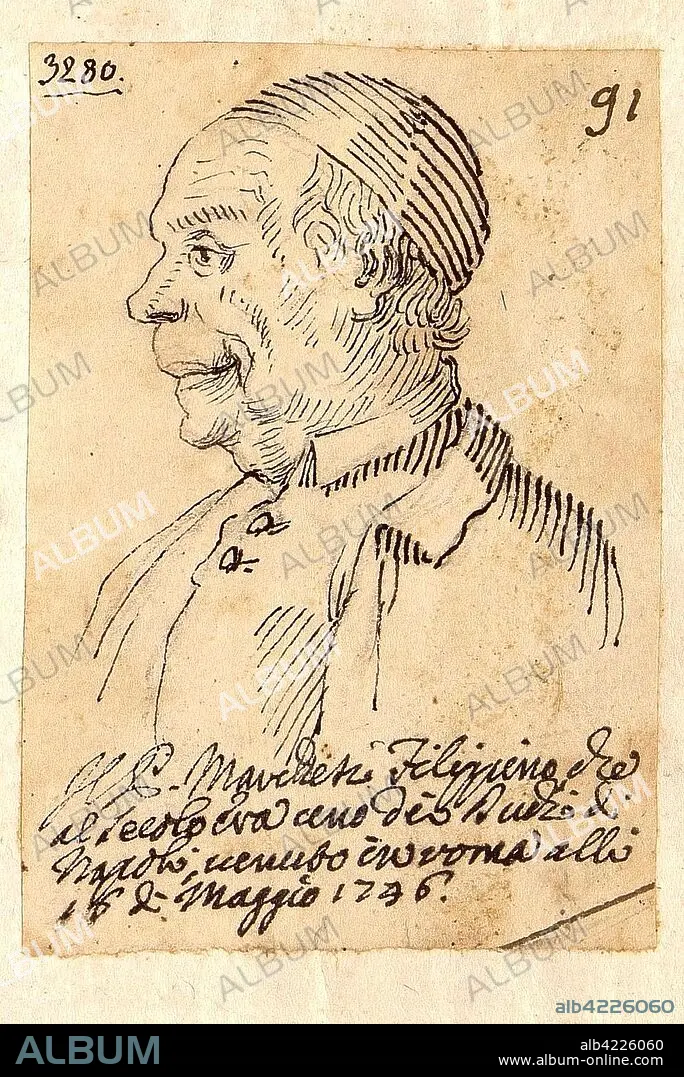 3280.
91
Il P. Marchetti Filippino che
al secolo era uno dei Duchi di
Napoli, venuto in roma alli
16 di Maggio 1746.
ALBUM
alb4226060
ALBUM
alb4226060
www.album-online.com